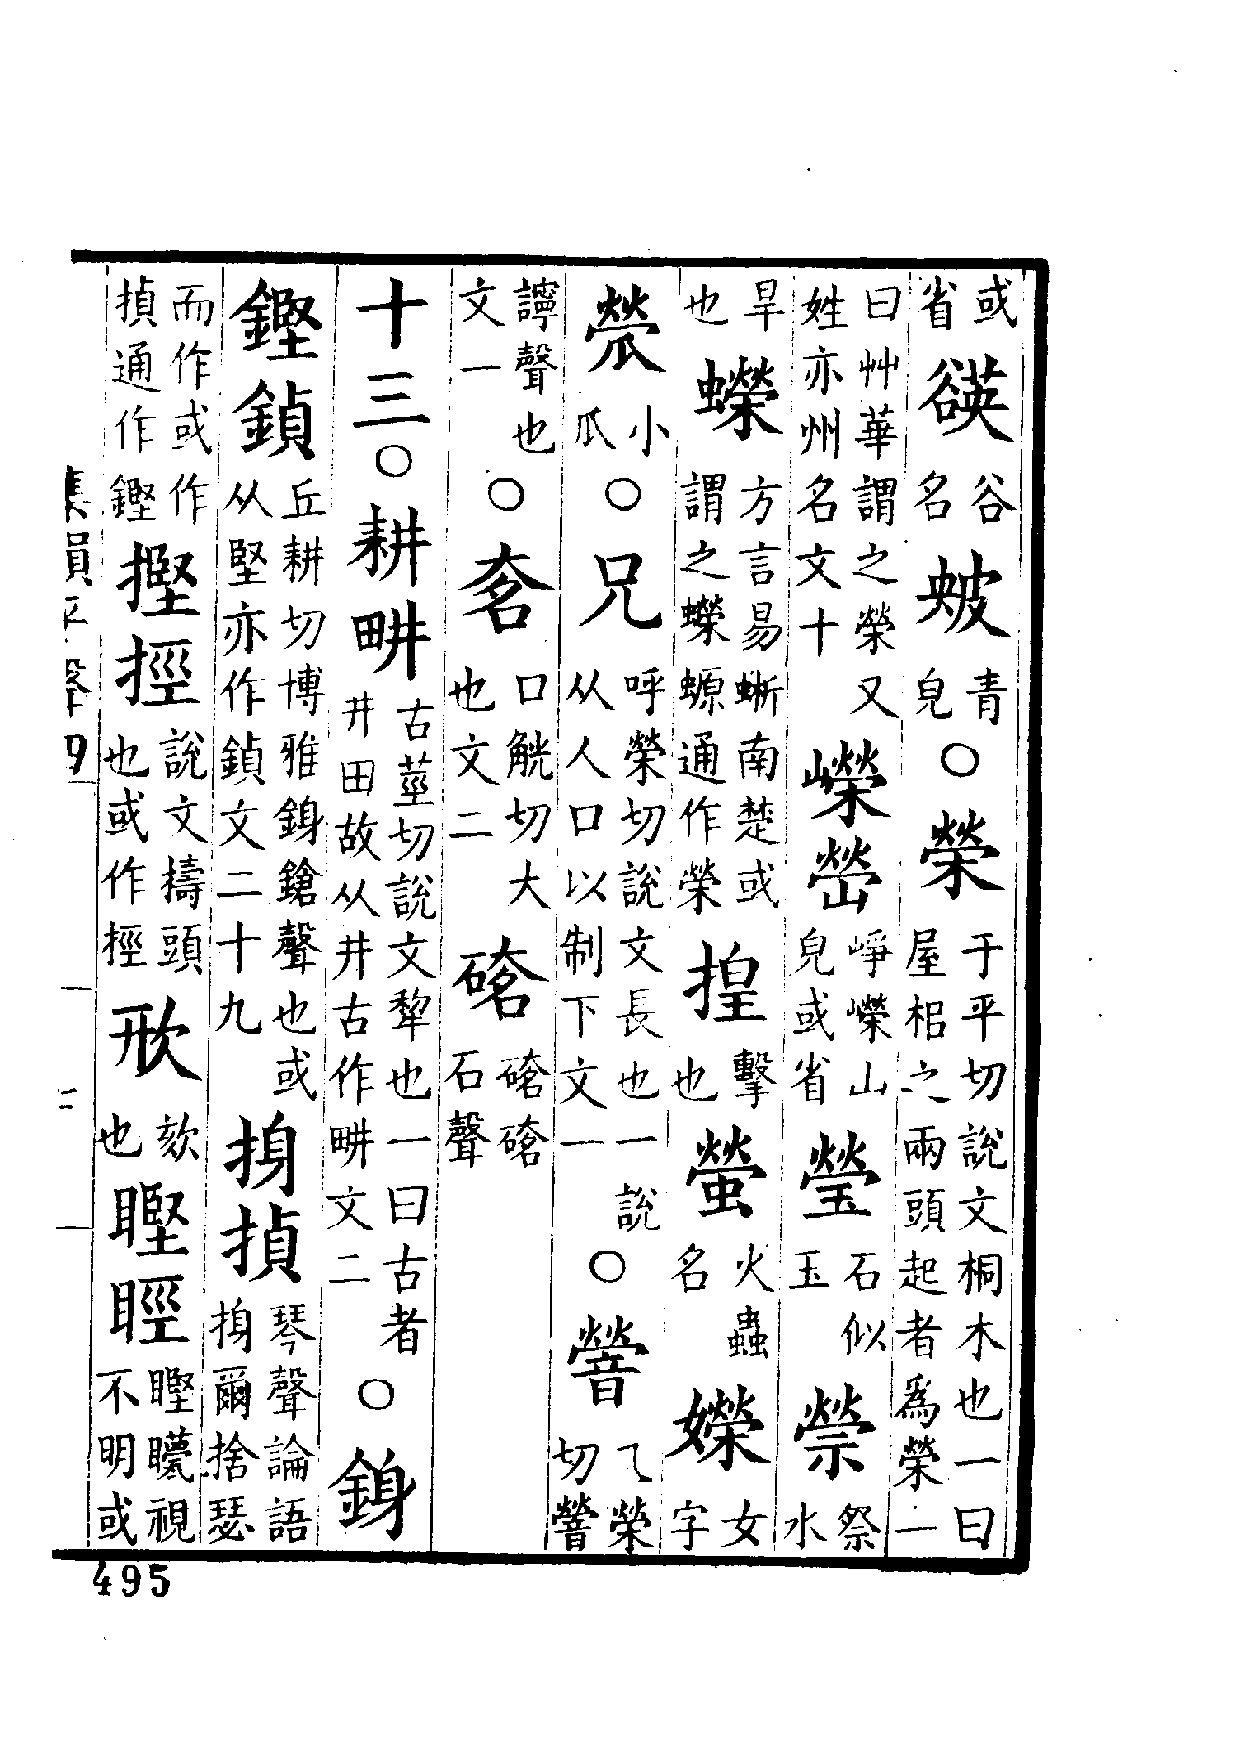 或省谷名青皃○榮于平切說文桐木也一曰屋梠之兩頭起者爲榮一
曰艸華謂之榮又姓亦州名文十嶸㟧崢嶸山皃或省瑩石似玉禜祭水
旱也蠑方言易蜥南楚或謂之蠑螈通作榮揘擊也螢火蟲名嬫女字
小瓜○兄呼榮切說文長也一說从人口以制下文一○謍乁榮切謍
聲也文一○口觥切大也文二石聲
十三○耕畊古莖切說文犂也一曰古者井田故从井古作畊文二○銵
鏗鍞丘耕切博雅銵鎗聲也或从堅亦作鍞文二十九搷琴聲論語爾捨瑟
而作或作搷通作鏗摼挳說文擣頭也或作挳欬也視不明或
集韻平聲四
二
495